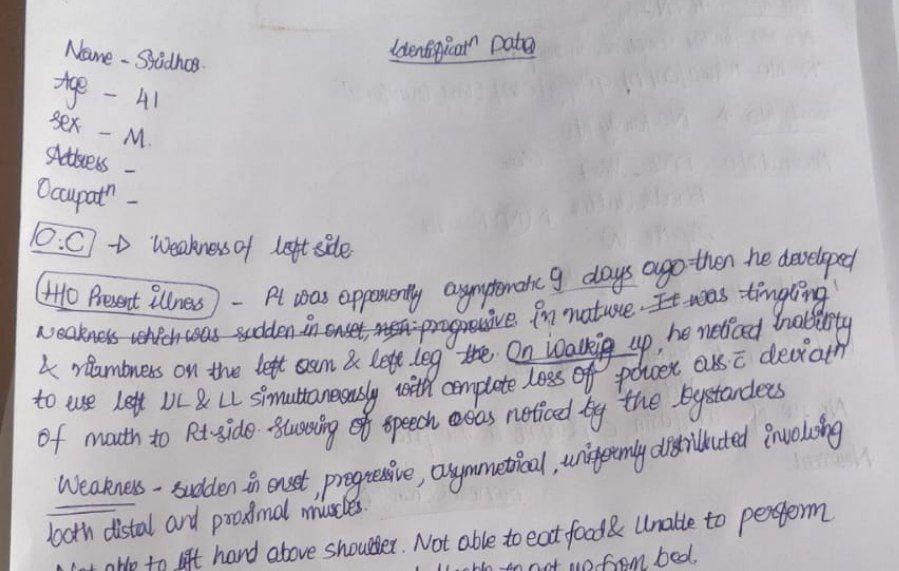 Identificatⁿ Data
Name - Sridhar.
Age - 41
Sex - M.
Address -
Occupatⁿ -
O.C → Weakness of left side.
H/O Present illness - Pt was apparently asymptomatic 9 days ago then he developed
weakness which was sudden in onset, non-progressive in nature. It was tingling
& numbness on the left arm & left leg the. On waking up, he noticed inability
to use left UL & LL simultaneously with complete loss of power ass. c̄ deviatⁿ
of mouth to Rt-side. Slurring of speech was noticed by the bystanders
Weakness - sudden in onset, progressive, asymmetrical, uniformly distributed involving
both distal and proximal muscles.
Not able to lift hand above shoulder. Not able to eat food & Unable to perform
to get up from bed.